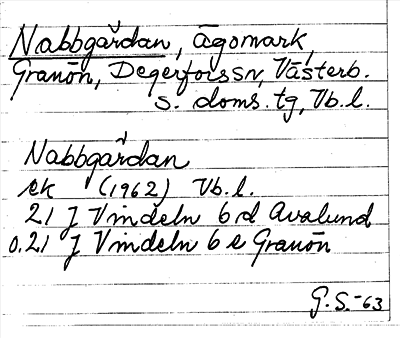 Nabbgården, ägomark,
Granön, Degerfors sn, Västerb.
s. doms. tg, Vb. l.
Nabbgården
ek (1962) Vb. l.
21 J Vindeln 6 d Avalund
o. 21 J Vindeln 6 e Granön
G. S. -63